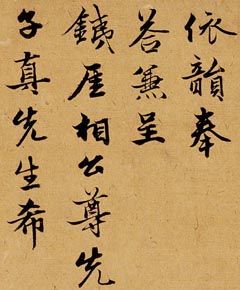 依韻奉
荅兼呈
銕厓相公尊先
子真先生希